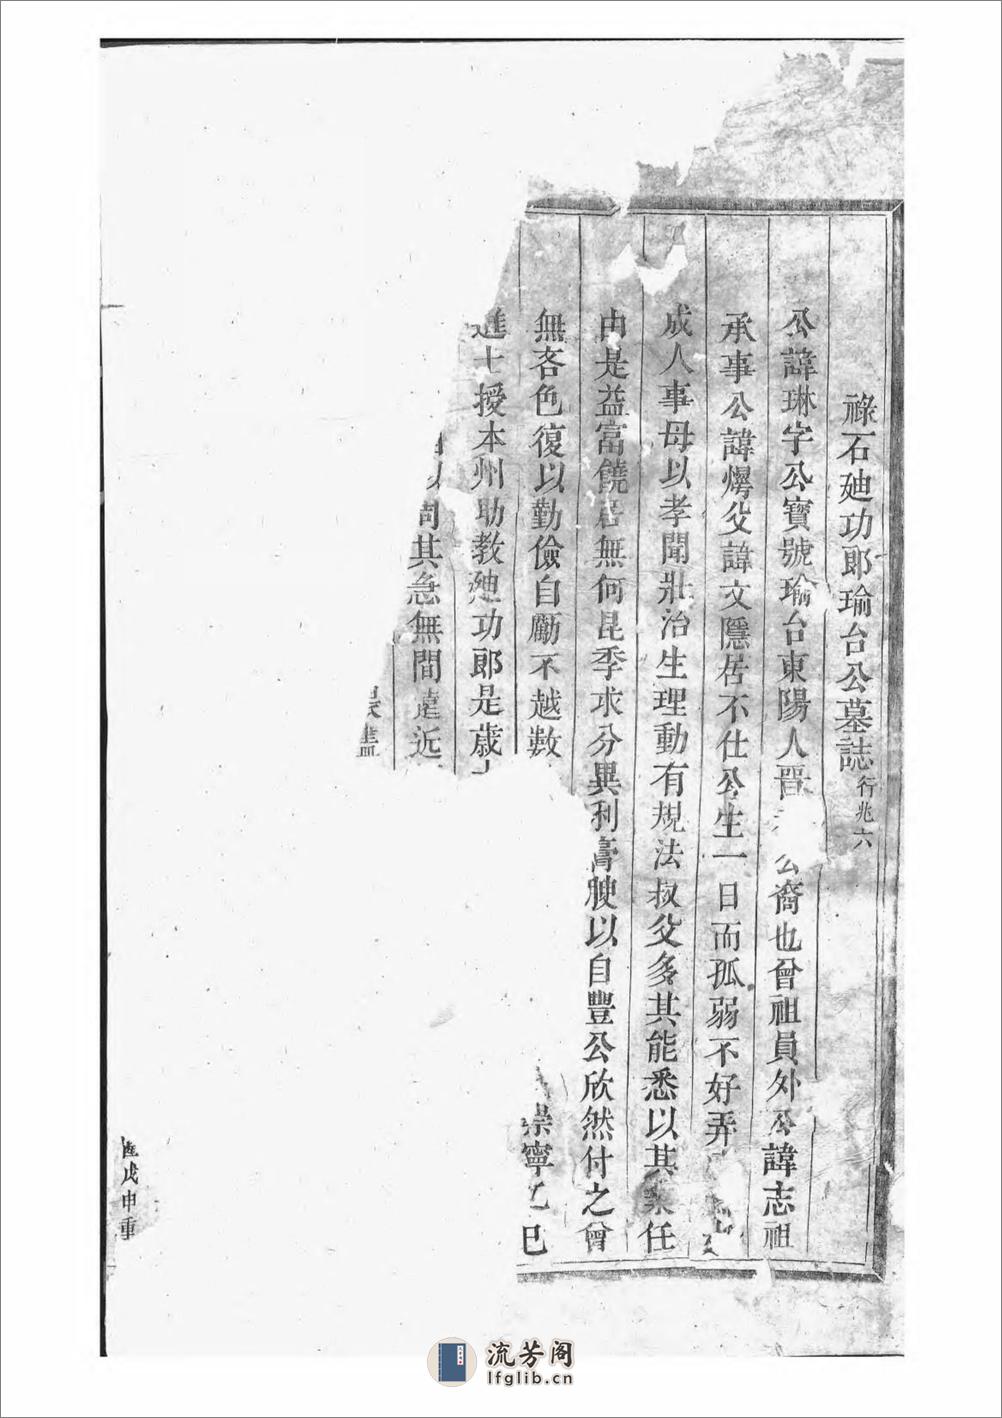 祿石廸功郎瑜台公墓誌行兆六
公諱琳字公寶號瑜台東陽人晋公裔也曾祖員外公諱志祖
承事公諱㷟父諱文隱居不仕公生一日而孤弱不好弄
成人事母以孝聞壯治生理動有規法叔父多其能悉以其業任
由是益富饒居無何昆季求分異利膏腴以自豐公欣然付之曾
無吝色復以勤儉自勵不越數崇寧乙巳
進士授本州助教廸功郎是歲大
以周其急無間遠近
戊申重
流芳阁
lfglib.cn